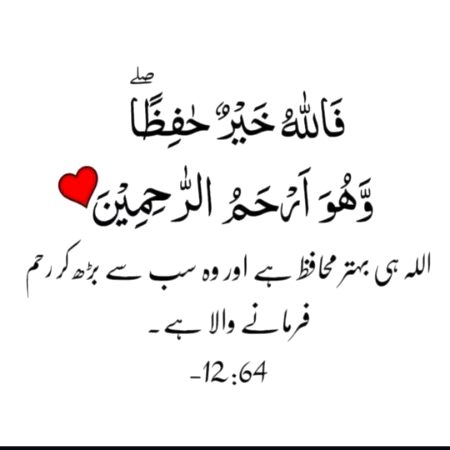 فَاللّٰهُ خَيْرٌ حٰفِظًاۖ
وَّهُوَ اَرْحَمُ الرّٰحِمِيْنَ
اللہ ہی بہتر محافظ ہے اور وہ سب سے بڑھ کر رحم
فرمانے والا ہے۔
-12:64